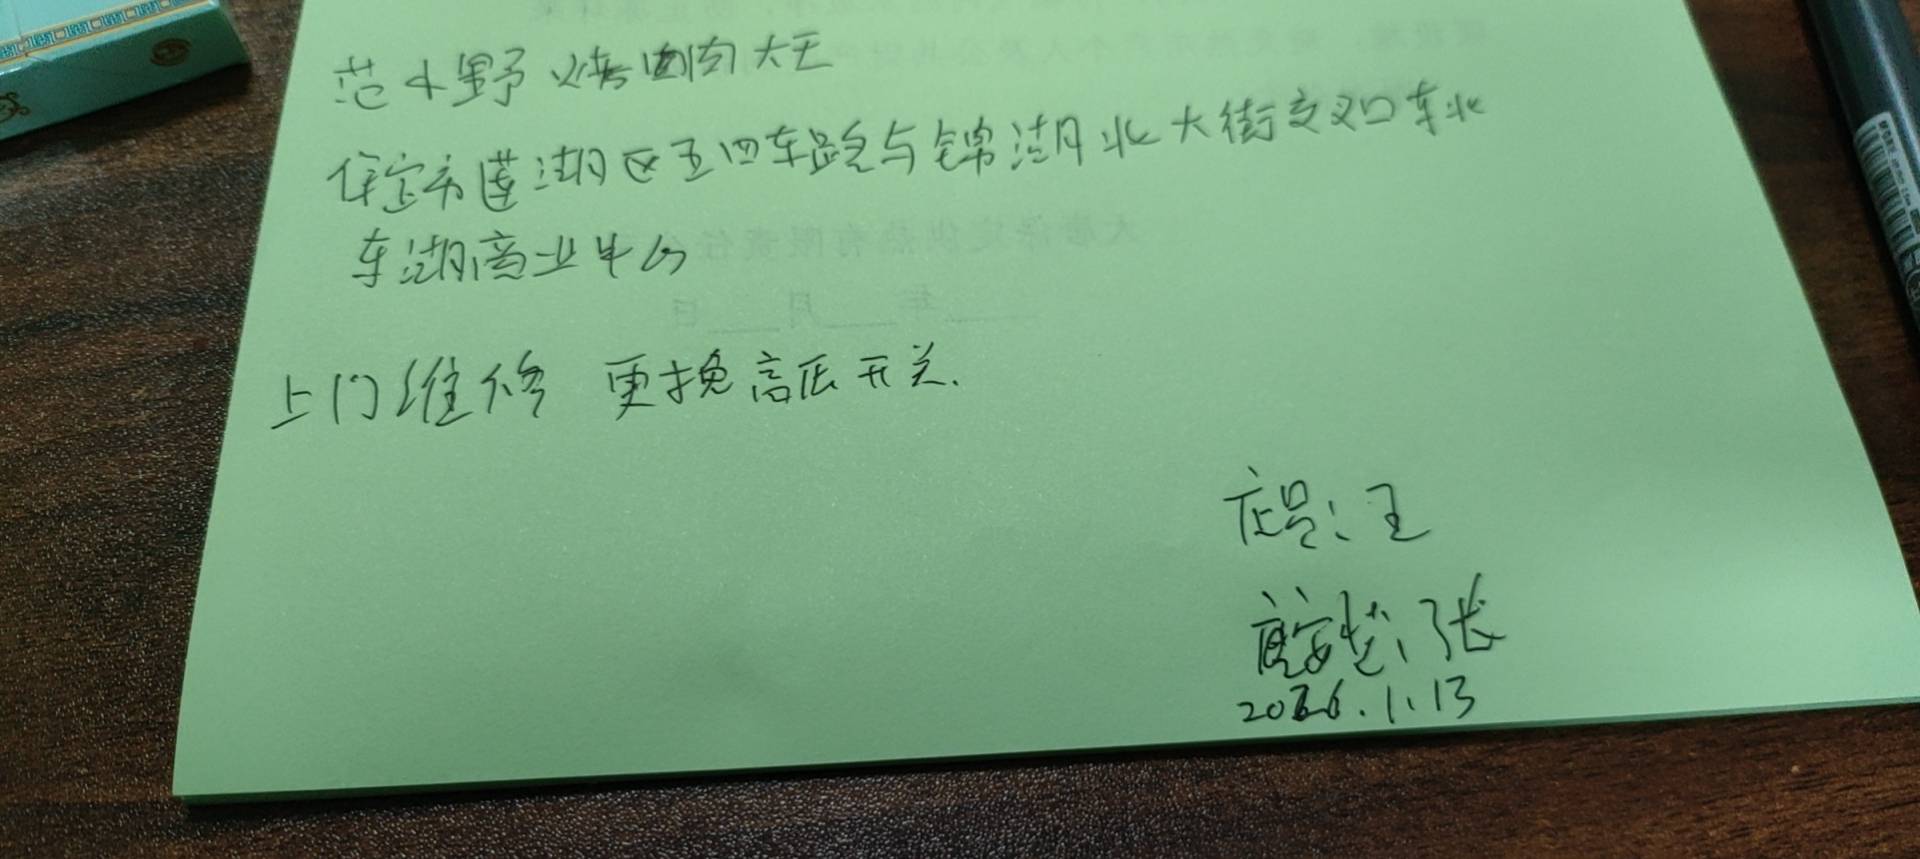 范小野火烤肉大王
保定市莲湖区五四东路与锦湖北大街交叉口东北
东湖商业中心
上门维修 更换高压开关.
店员:王
张
2026.1.13